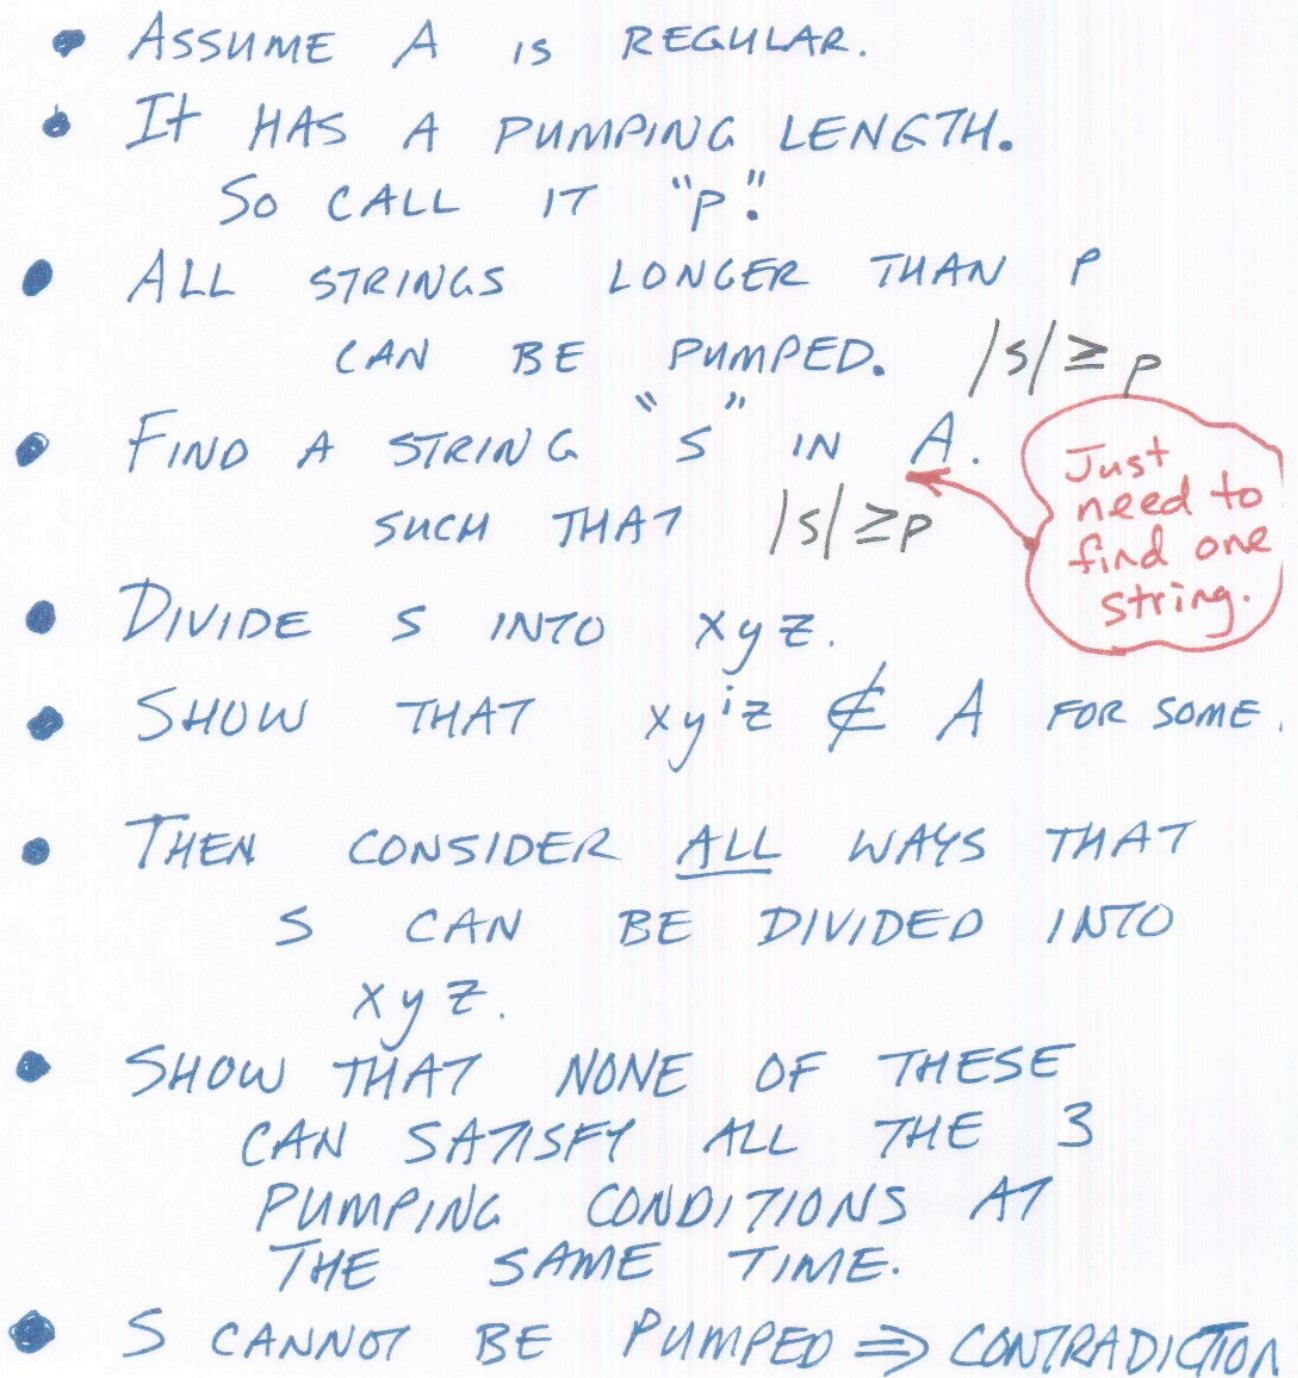 • ASSUME A IS REGULAR.
• It HAS A PUMPING LENGTH.
SO CALL IT "P".
• ALL STRINGS LONGER THAN P
CAN BE PUMPED. |s| ≥ p
• FIND A STRING "S" IN A.
SUCH THAT |s| ≥ p
Just
need to
find one
string.
• DIVIDE S INTO xyz.
• SHOW THAT xyⁱz ∉ A FOR SOME
• THEN CONSIDER ALL WAYS THAT
S CAN BE DIVIDED INTO
xyz.
• SHOW THAT NONE OF THESE
CAN SATISFY ALL THE 3
PUMPING CONDITIONS AT
THE SAME TIME.
• S CANNOT BE PUMPED ⇒ CONTRADICTION